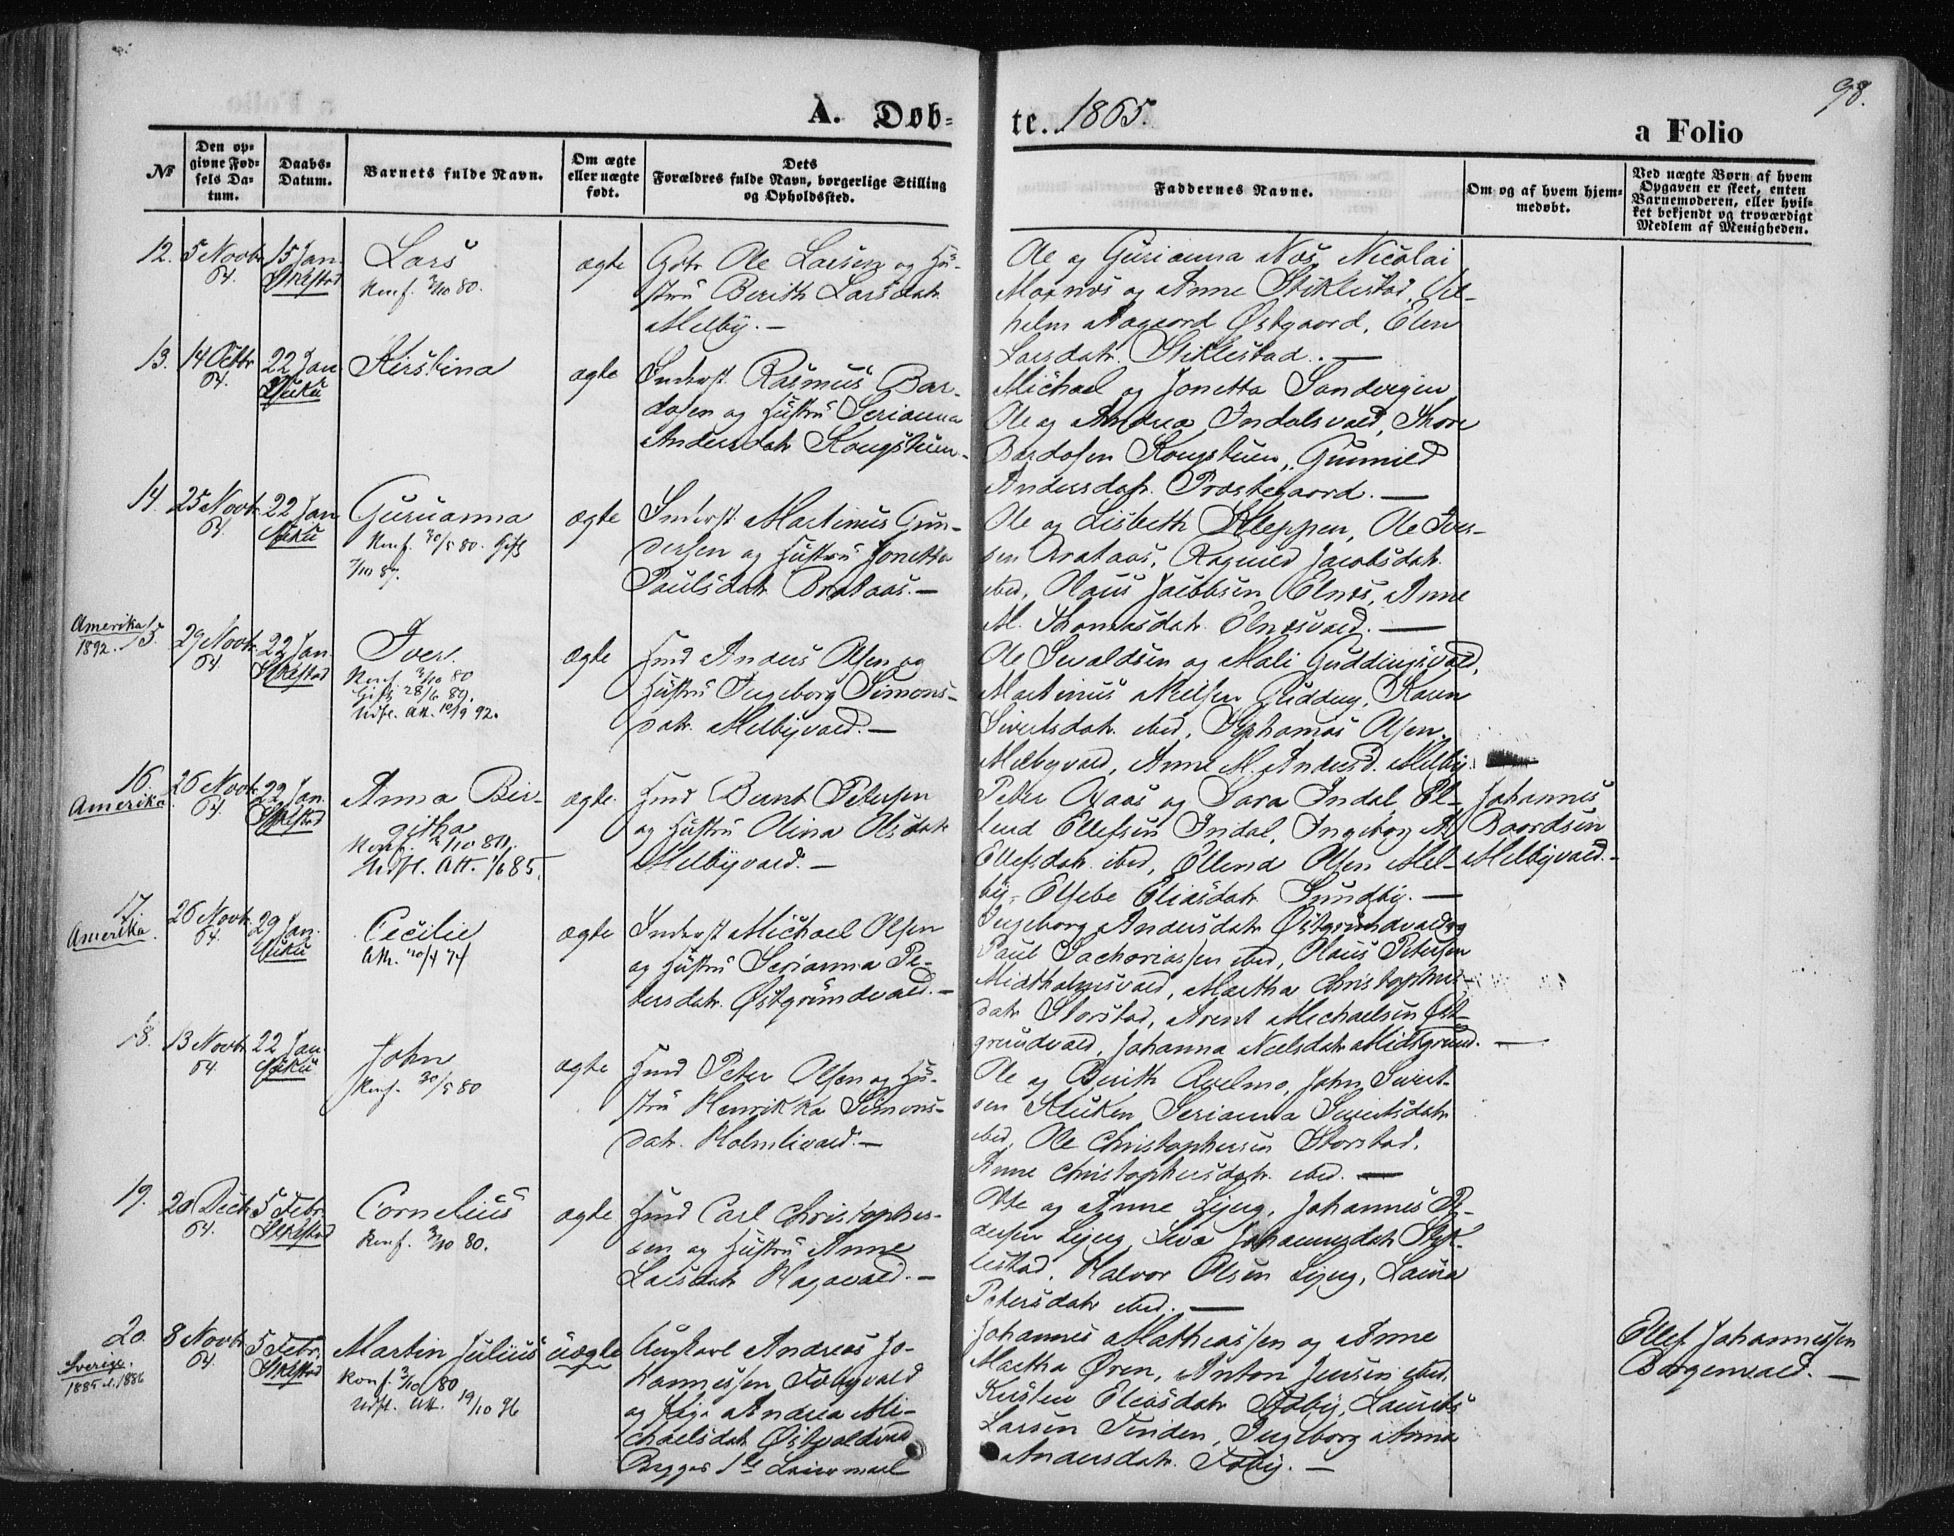 98.
A. Døb-
te. 1865.
a Folio
№
Den op-
givne Fød-
sels Da-
tum.
Daabs-
Datum.
Barnets fulde Navn.
Om ægte
eller uægte
født.
Dets
Forældres fulde Navn, borgerlige Stilling
og Opholdssted.
Faddernes Navne.
Om og af hvem hjem-
medøbt.
Ved uægte Børn af hvem
Opgaven er skeet, enten
Barnemoderen, eller hvil-
ket bekjendt og troværdigt
Medlem af Menigheden.
12.
5 Novbr
64.
15 Jan.
Stklstad
Lars
Konf. 3/10 80.
ægte
Gbr. Ole Larsen og Hu-
stru Berith Larsdatr
Melby. —
Ole og Gurianna Næs, Nicolai
Marnæs og Anne Stiklestad, Vil-
helm Aagaard Østgaard, Elen
Larsdatr. Stiklestad. —
13.
14 Octbr
64.
22 Jan
Kirstina
ægte
Inderst Rasmus Bar-
dosen og Hustru Serianna
Andersdatr Kongstuen.
Michael og Jonetta Sandvigen
Ole og Andrea Indalsvald, Thore
Bardosen Kongstuen, Gunnild
Andersdatr. Præstegaard. —
14.
25 Novbr
64.
22 Jan
Guruanna
Konf. 30/5 80. Gift
7/10 87.
ægte
Inderst Martinus Gun-
dersen og Hustru Jonetta
Paulsdatr Brataas. —
Ole og Lisbeth Kleppen, Ole Iver-
sen Brataas, Ragnild Jacobsdatr.
ibid, Olaus Jacobsen Elnæs, Anne
M. Thomasdatr. Elnæsvald. —
Amerika
1892.
15.
29 Novbr.
64.
22 Jan.
Stklstad
Iver.
Konf. 3/10 80
Gift 28/6 89.
Udfl. Att. 10/9 92.
ægte
Hmd Anders Olsen og
Hustru Ingeborg Simons-
datr. Melbyvald. —
Ole Sevaldsen og Mali Guddingsvald,
Martinus Nilsen Gudding, Karen
Sivertsdatr. ibid, Olsen
Melbyvald, Anne M. Andersd. Melby.
16.
Amerika
26 Novbr.
64.
22 Jan.
Stklstad
Anna Bir-
githa
Konf. 3/10 80.
Udfl. Att. 1/6 85.
ægte.
Hmd Bernt Petersen
og Hustru Olina Olsdatr
Melbyvald. —
Peter Aas og Sara Indal, El-
lend Ellefsen Indal, Ingeborg M.
Ellefsdatr. ibid, Ellend Olsen Mel-
by, Elsebe Eliasdatr. Sundby. —
Johannes
Baardsen
Melbyvald. —
17.
Amerika.
26 Novbr.
64.
29 Jan.
Cecilie
Att. 20/4 74
ægte
Inderst Michael Olsen
og Hustru Serianna Pe-
tersdatr. Østgrundvald. —
Ingeborg Andersdatr Østgrundvald og
Paul Sachariassen ibid, Olaus Petersen
Midtholmsvald, Martha Christophers-
datr Storstad, Arent Michaelsen Øst-
grundvald, Johanna Neelsdatr Midtgrund. —
18.
13 Novbr.
64.
22 Jan.
John
Konf. 30/5 80
ægte
Hmd Peter Olsen og Hu-
stru Henrikka Simons-
datr. Holmlivald. —
Ole og Berith Avelmo, John Sivert-
sen Sluken, Serianna Sivertsdatr
ibid, Ole Christophersen Storstad,
Anne Christophersdatr. ibid. —
19.
20 Decbr
64.
5 Febr.
Stklstad
Cornelius
Konf. 3/10 80.
ægte
Hmd Carl Christopher-
sen og Hustru Anne
Larsdatr Hagavald. —
Otte og Anne Lyng, Johannes Pe-
dersen Lyng, Johannesdatr Stik-
lestad, Halvor Olsen Lyng, Laura
Petersdatr ibid. —
20.
Sverige.
1885 l. 1886
8 Novbr
64.
5 Febr.
Stklstad
Martin Julius
Konf. 3/10 80
Udfl. Att. 19/10 86
uægte
Ungkarl Andreas Jo-
hannessen Fabyvald
og Pige Andrea Mi-
chaelsdatr Østvoldvald
Begges 1ste Leiermaal
Johannes Mathiassen og Anne
Martha Øren, Anton Jensen ibid,
Kirsten Eliasdatr Faaby, Laurits
Larsen Tinden, Ingeborg Anna
Andersdatr. Faaby. —
Ellef Johannessen
Borgenvald. —